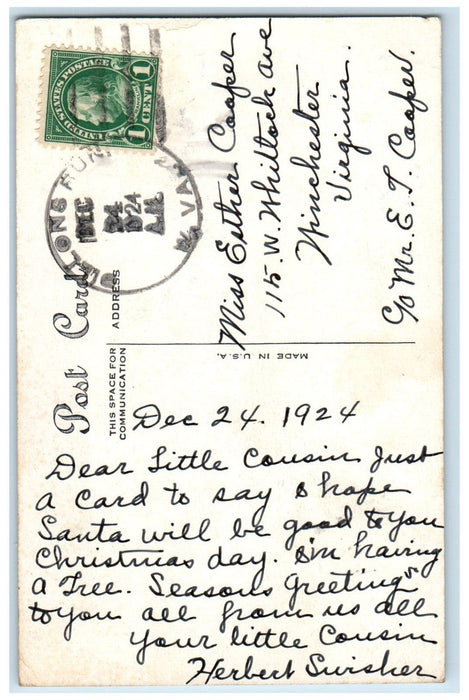 UNITED STATES POSTAGE
1 1
CENT
DEC
24
1924
A.M.
W. VA.
Post Card
ADDRESS
THIS SPACE FOR
COMMUNICATION
MADE IN U.S.A.
Miss Esther Cooper
115 W. Whitlock ave
Winchester
Virginia.
C/o Mr. E. T. Cooper.
Dec 24. 1924
Dear Little Cousin Just
a Card to say I hope
Santa will be good to you
Christmas day. I'm having
a Tree. Seasons Greetings
to you all from us all
your little Cousin
Herbert Swisher